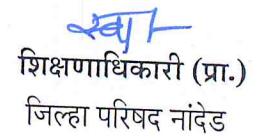 स्वा/-
शिक्षणाधिकारी (प्रा.)
जिल्हा परिषद नांदेड